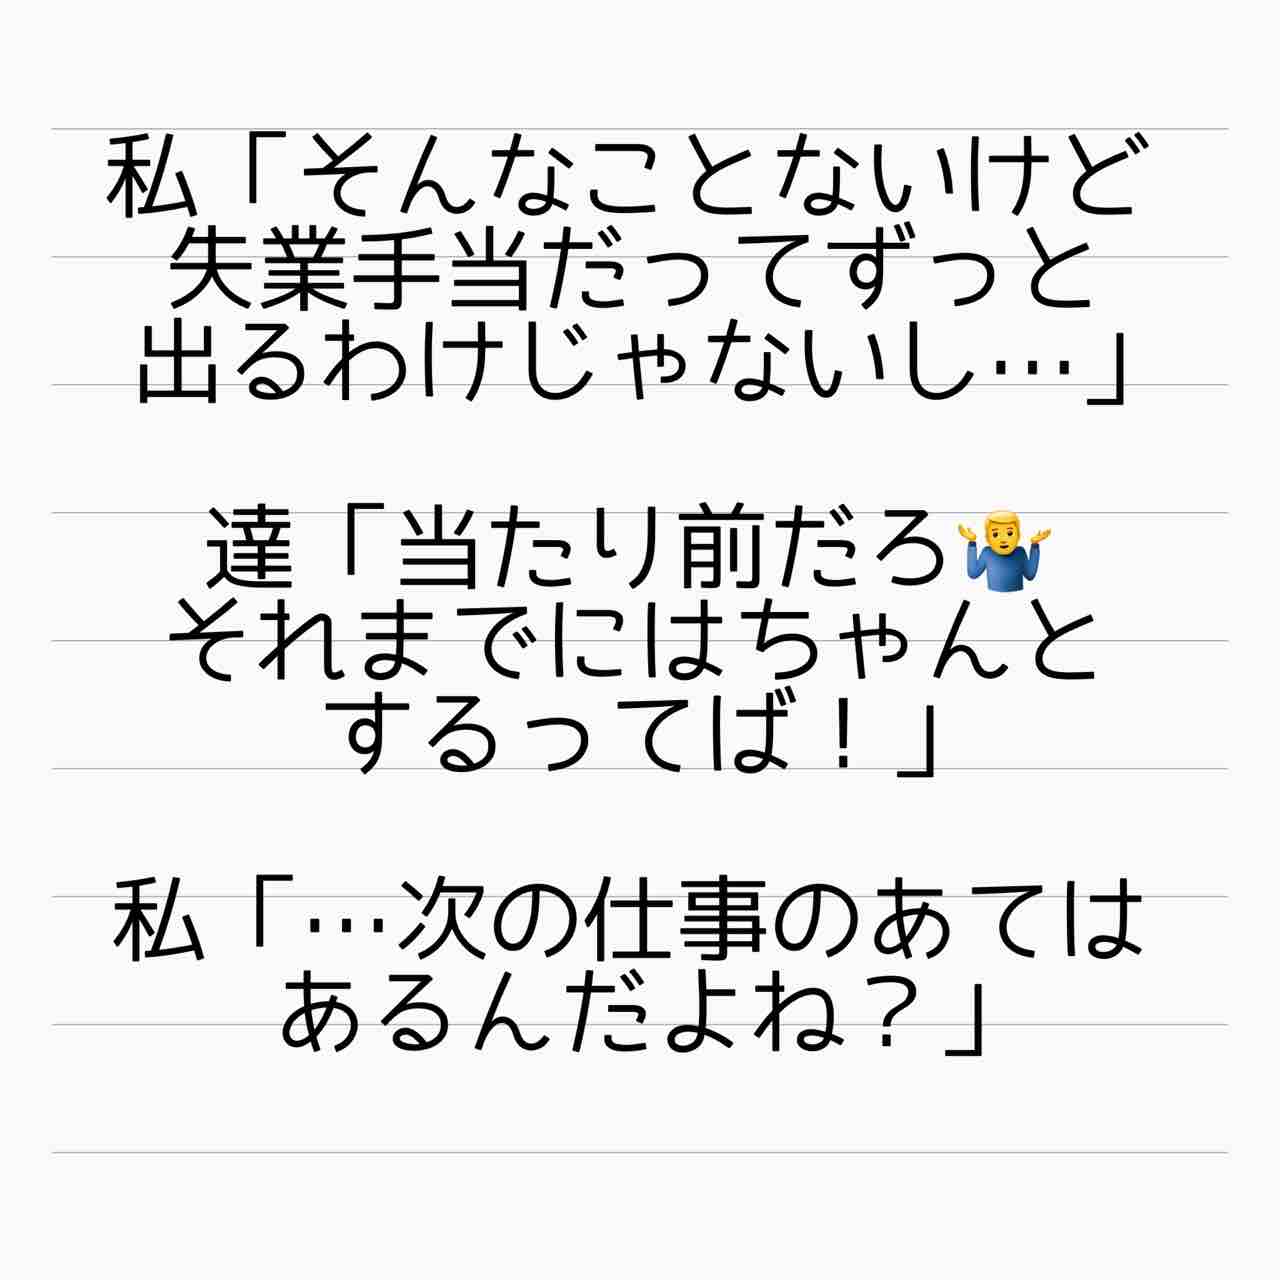 私「そんなことないけど
失業手当だってずっと
出るわけじゃないし…」
達「当たり前だろ🤷‍♂️
それまでにはちゃんと
するってば！」
私「…次の仕事のあては
あるんだよね？」